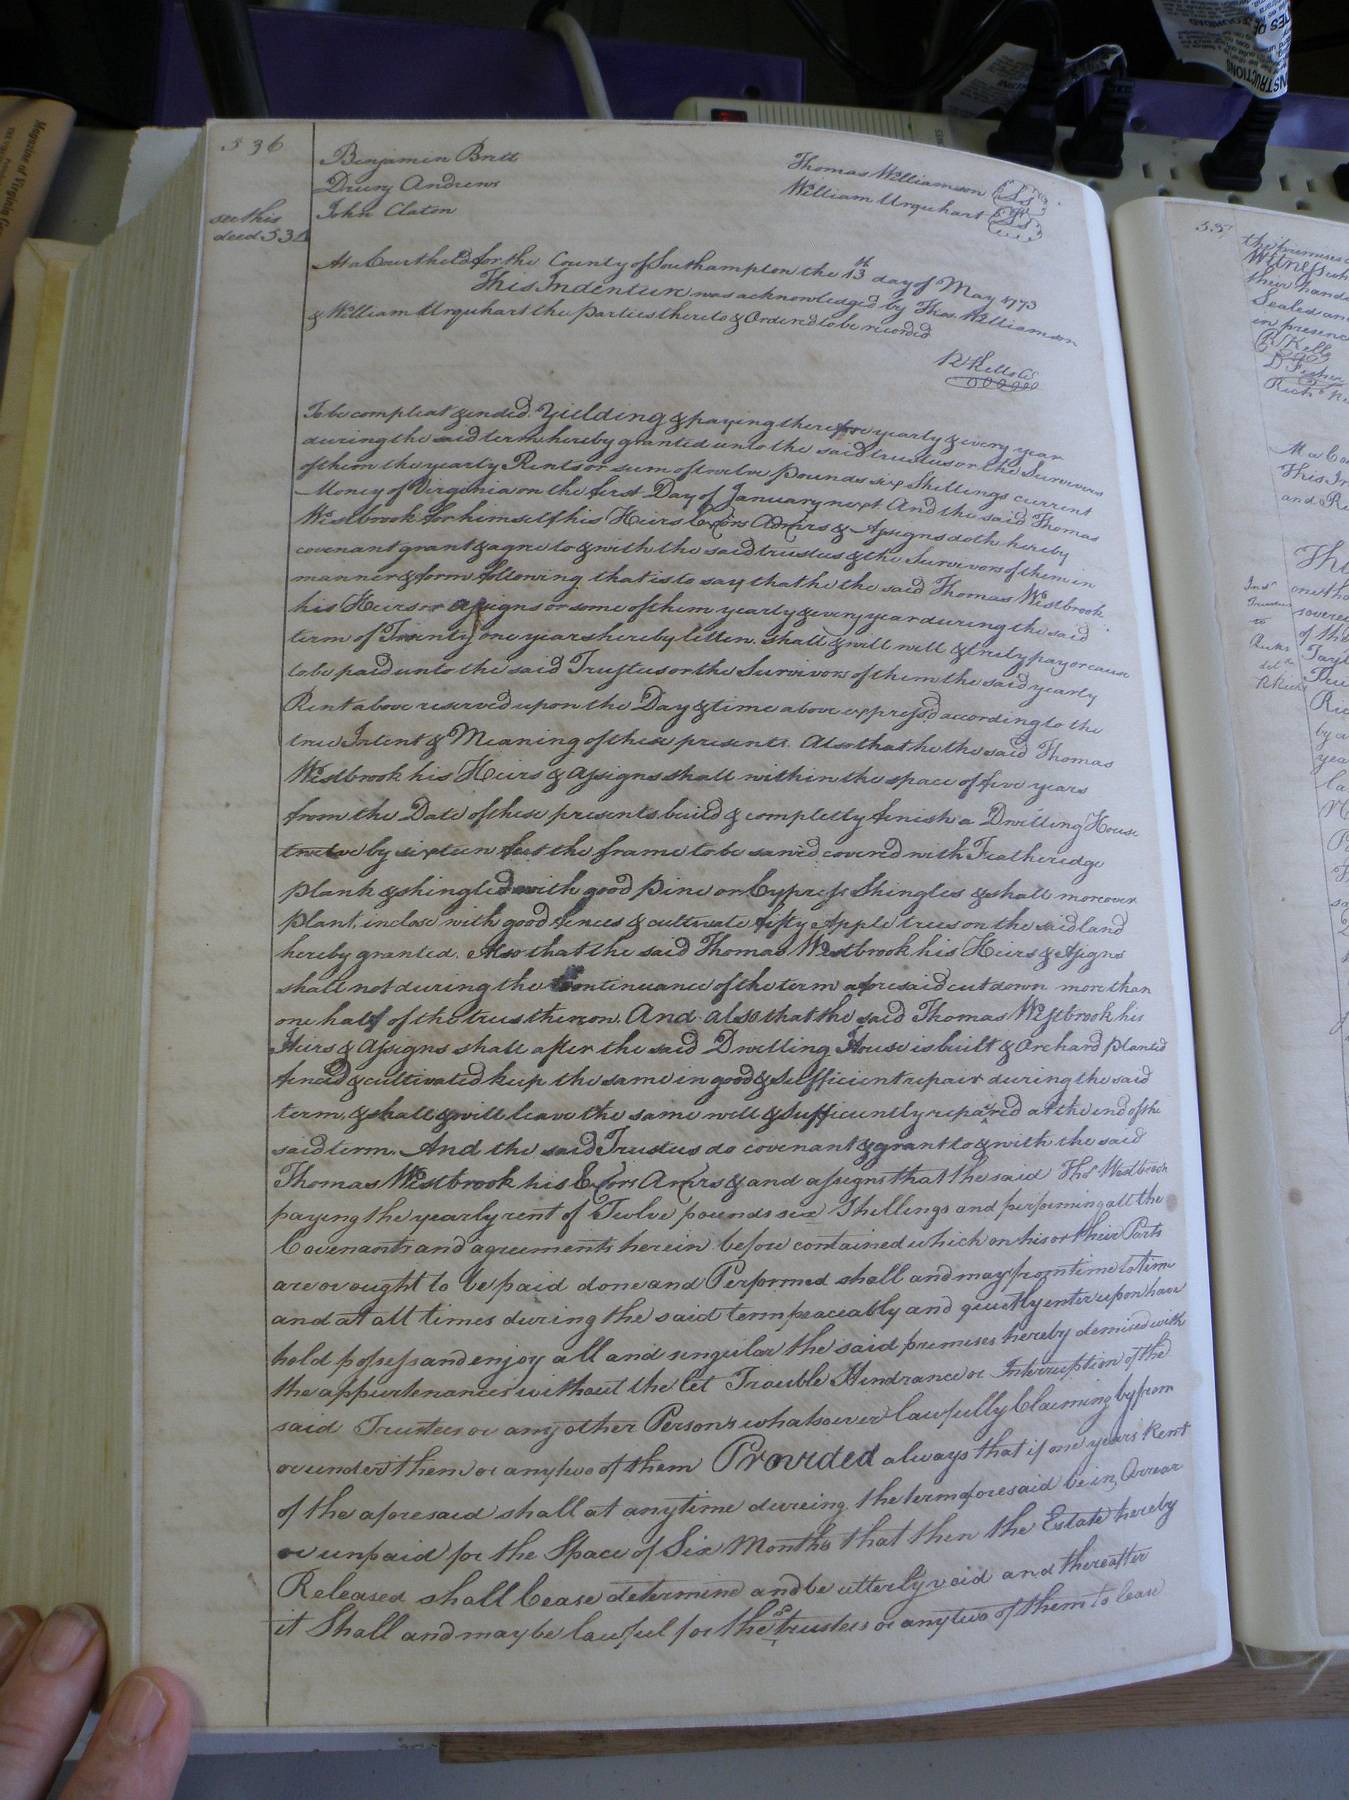 536
Benjamin Britt
Drury Andrews
John Claton
Thomas Williamson LS
William Urquhart LS
see this
deed 53
At a Court held for the County of Southampton the 13th day of May 1773
This Indenture was acknowledged by Thos. Williamson
& William Urquhart the Parties thereto & Ordered to be recorded
R Kello
To be compleat & ended. Yielding & paying therefore yearly & every year
during the said term hereby granted unto the said trustees or the Survivors
of them the yearly Rents or sum of twelve Pounds six Shillings current
Money of Virginia on the first Day of January next And the said Thomas
Westbrook for himself his Heirs Exors Admrs & Assigns doth hereby
covenant grant & agree to & with the said trustees & the Survivors of them in
manner & form following that is to say that he the said Thomas Westbrook
his Heirs or Assigns or some of them yearly & every year during the said
term of Twenty one years hereby letten. shall & will well & truly pay or cause
to be paid unto the said Trustees or the Survivors of them the said yearly
Rent above reserved upon the Day & time above express'd according to the
true Intent & Meaning of these presents. Also that he the said Thomas
Westbrook his Heirs & Assigns shall within the space of five years
from the Date of these presents build & completly finish a Dwelling House
twelve by sixteen feet the frame to be sawed covered with Featheredge
plank & shingled with good Pine or Cypress Shingles & shall moreover
plant, inclose with good fences & cultivate fifty Apple trees on the said land
hereby granted. Also that the said Thomas Westbrook his Heirs & Assigns
shall not during the Continuance of the term aforesaid cut down more than
one half of the trees thereon. And also that the said Thomas Westbrook his
Heirs & Assigns shall after the said Dwelling House is built & Orchard planted
fenced & cultivated keep the same in good & sufficient repair during the said
term, & shall & will leave the same well & sufficiently repaired at the end of the
said term. And the said Trustees do covenant & grant to & with the said
Thomas Westbrook his Exors Amrs & and assigns that the said Thos Westbrook
paying the yearly rent of Twelve pounds six Shillings and performing all the
Covenants and agreements herein before contained which on his or their Parts
are or ought to be paid done and Performed shall and may from time to time
and at all times during the said term peaceably and quietly enter upon have
hold possess and enjoy all and singular the said premises hereby demised with
the appurtenances without the let Trouble Hindrance or Interruption of the
said Trustees or any other Persons whatsoever lawfully Claiming by from
or under them or any two of them Provided always that if one years Rent
of the aforesaid shall at any time dureing the term aforesaid be in Arrear
or unpaid for the Space of Six Months that then the Estate hereby
Released shall Cease determine and be utterly void and thereafter
it Shall and may be lawful for the sd trustees or any two of them to lease
the premises
Witness
their hands
Sealed an
in presenc
R Kello
This In
and Re